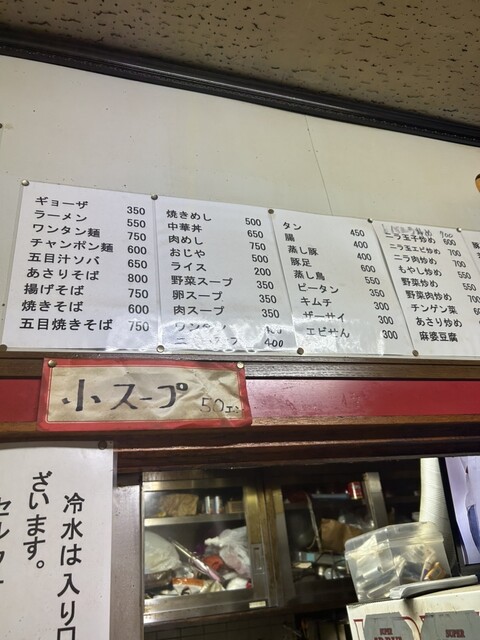 ギョーザ 350
ラーメン 550
ワンタン麺 750
チャンポン麺 600
五目汁ソバ 650
あさりそば 800
揚げそば 750
焼きそば 600
五目焼きそば 750
焼きめし 500
中華丼 650
肉めし 750
おじや 500
ライス 200
野菜スープ 350
卵スープ 350
肉スープ 350
400
タン 450
腸 400
蒸し豚 400
豚足 600
蒸し鳥 550
ピータン 350
キムチ 300
ザーサイ 300
エビせん 300
ニラ玉子炒め 600
ニラ玉エビ炒め 700
ニラ肉炒め 700
もやし炒め 550
野菜炒め 550
野菜肉炒め 700
チンゲン菜
あさり炒め
麻婆豆腐
小スープ 50エン
冷水は入り口
ざいます。
セルフ